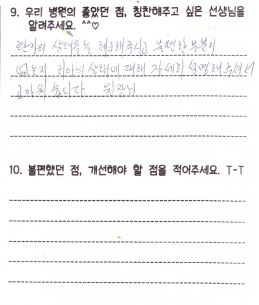 9. 우리 병원의 좋았던 점, 칭찬해주고 싶은 선생님을
알려주세요. ^^♡
환자의 상태를 체크해주시고 불편한 부분이
없는지 치아의 상태에 대해 자세히 설명해 주셔서
고마웠습니다 원장님
10. 불편했던 점, 개선해야 할 점을 적어주세요. T-T